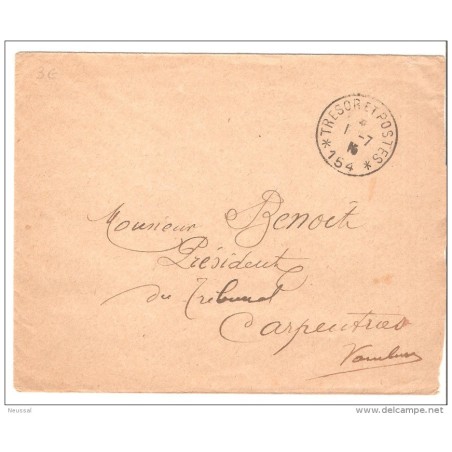 3€
TRESOR ET POSTES
1 -7
16
* 154 *
Monsieur Benoit
Président
du Tribunal
Carpentras
Vaucluse
Neussal
www.delcampe.net